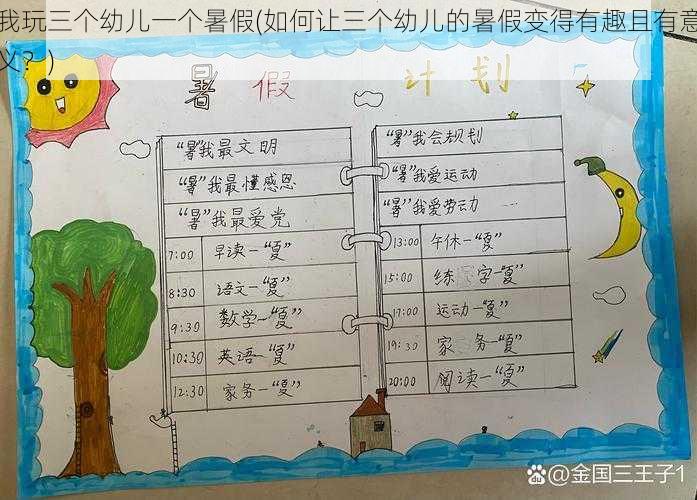 我玩三个幼儿一个暑假(如何让三个幼儿的暑假变得有趣且有意
义？)
暑假 计划
“暑”我最文明
“暑”我最懂感恩
“暑”我最爱党
7:00 早读一“夏”
8:30 语文一“夏”
9:30 数学一“夏”
10:30 英语一“夏”
12:30 家务一“夏”
“暑”我会规划
“暑”我爱运动
“暑”我爱劳动
13:00 午休一“夏”
15:00 练字一“夏”
17:00 运动一“夏”
19:30 家务一“夏”
20:00 阅读一“夏”
Bai百度 @金国三王子1